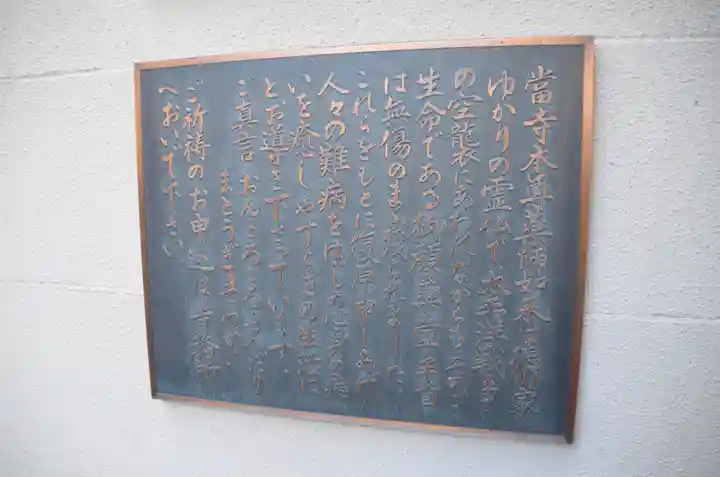 當寺本尊薬師如来は徳川家
ゆかりの霊仏で 太平洋戦争
の空襲にあわれながらも
生命である御積 手日
は無傷のまゝ残されました
これらをもとに
人々の難病をはじめ心身の病
いを癒し やすらぎの生活に
とお導き下さっています。
ご真言 おんころころせんだり
まとうぎそわか
ご祈祷のお申込は寺務所
へおいで下さい